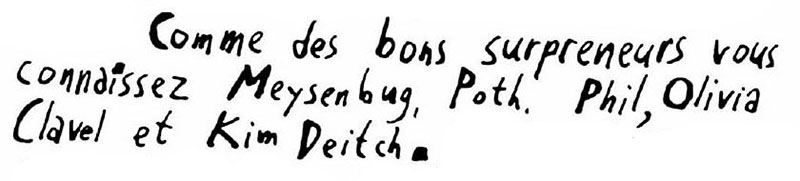 Comme des bons surpreneurs vous
connaissez Meysenbug, Poth. Phil, Olivia
Clavel et Kim Deitch.